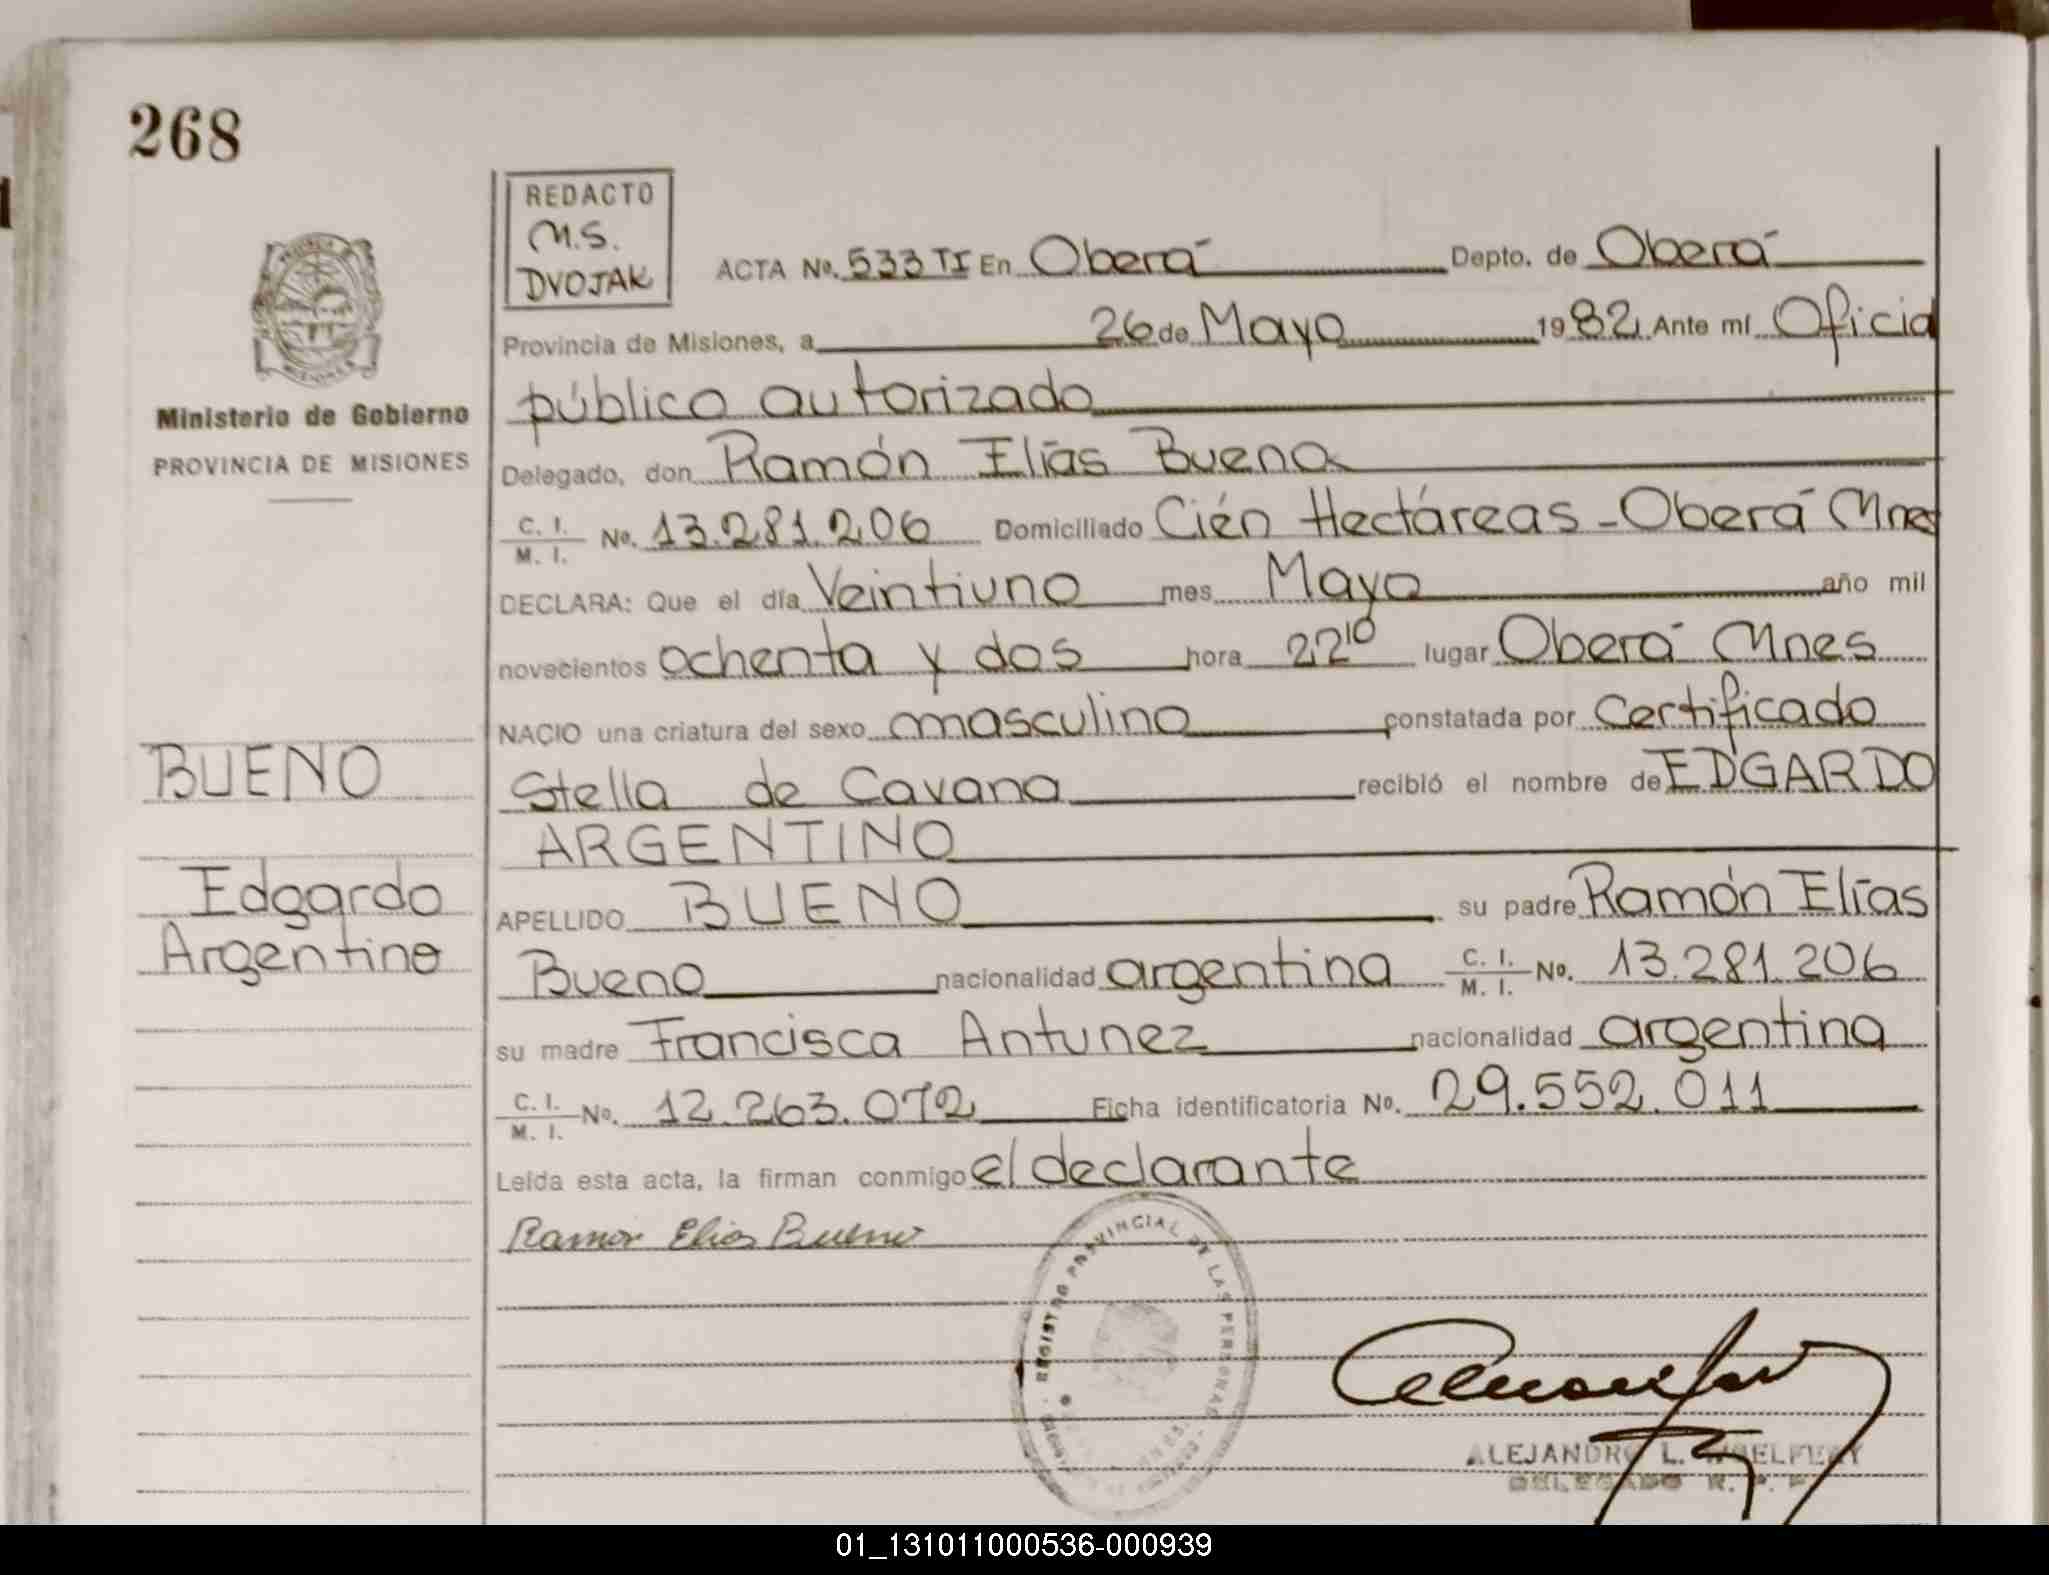 268
REDACTO
M.S.
DVOJAK
ACTA No. 533 TI En Oberá Depto. de Oberá
Provincia de Misiones, a 26 de Mayo 1982 Ante mí Oficial
público autorizado
Ministerio de Gobierno
PROVINCIA DE MISIONES
Delegado, don Ramón Elías Bueno
C. I. / M. I. No. 13.281.206 Domiciliado Cién Hectáreas - Oberá Mnes
DECLARA: Que el día Veintiuno mes Mayo año mil
novecientos ochenta y dos hora 22 10 lugar Oberá Mnes
NACIO una criatura del sexo masculino constatada por Certificado
BUENO
Stella de Cavana recibió el nombre de EDGARDO
ARGENTINO
Edgardo
Argentino
APELLIDO BUENO su padre Ramón Elías
Bueno nacionalidad argentina C. I. / M. I. No. 13.281.206
su madre Francisca Antunez nacionalidad argentina
C. I. / M. I. No. 12.263.072 Ficha identificatoria No. 29.552.011
Leída esta acta, la firman conmigo el declarante
Ramón Elias Bueno
REGISTRO PROVINCIAL DE LAS PERSONAS
ALEJANDRO L.
DELEGADO R. P. P.
01_131011000536-000939